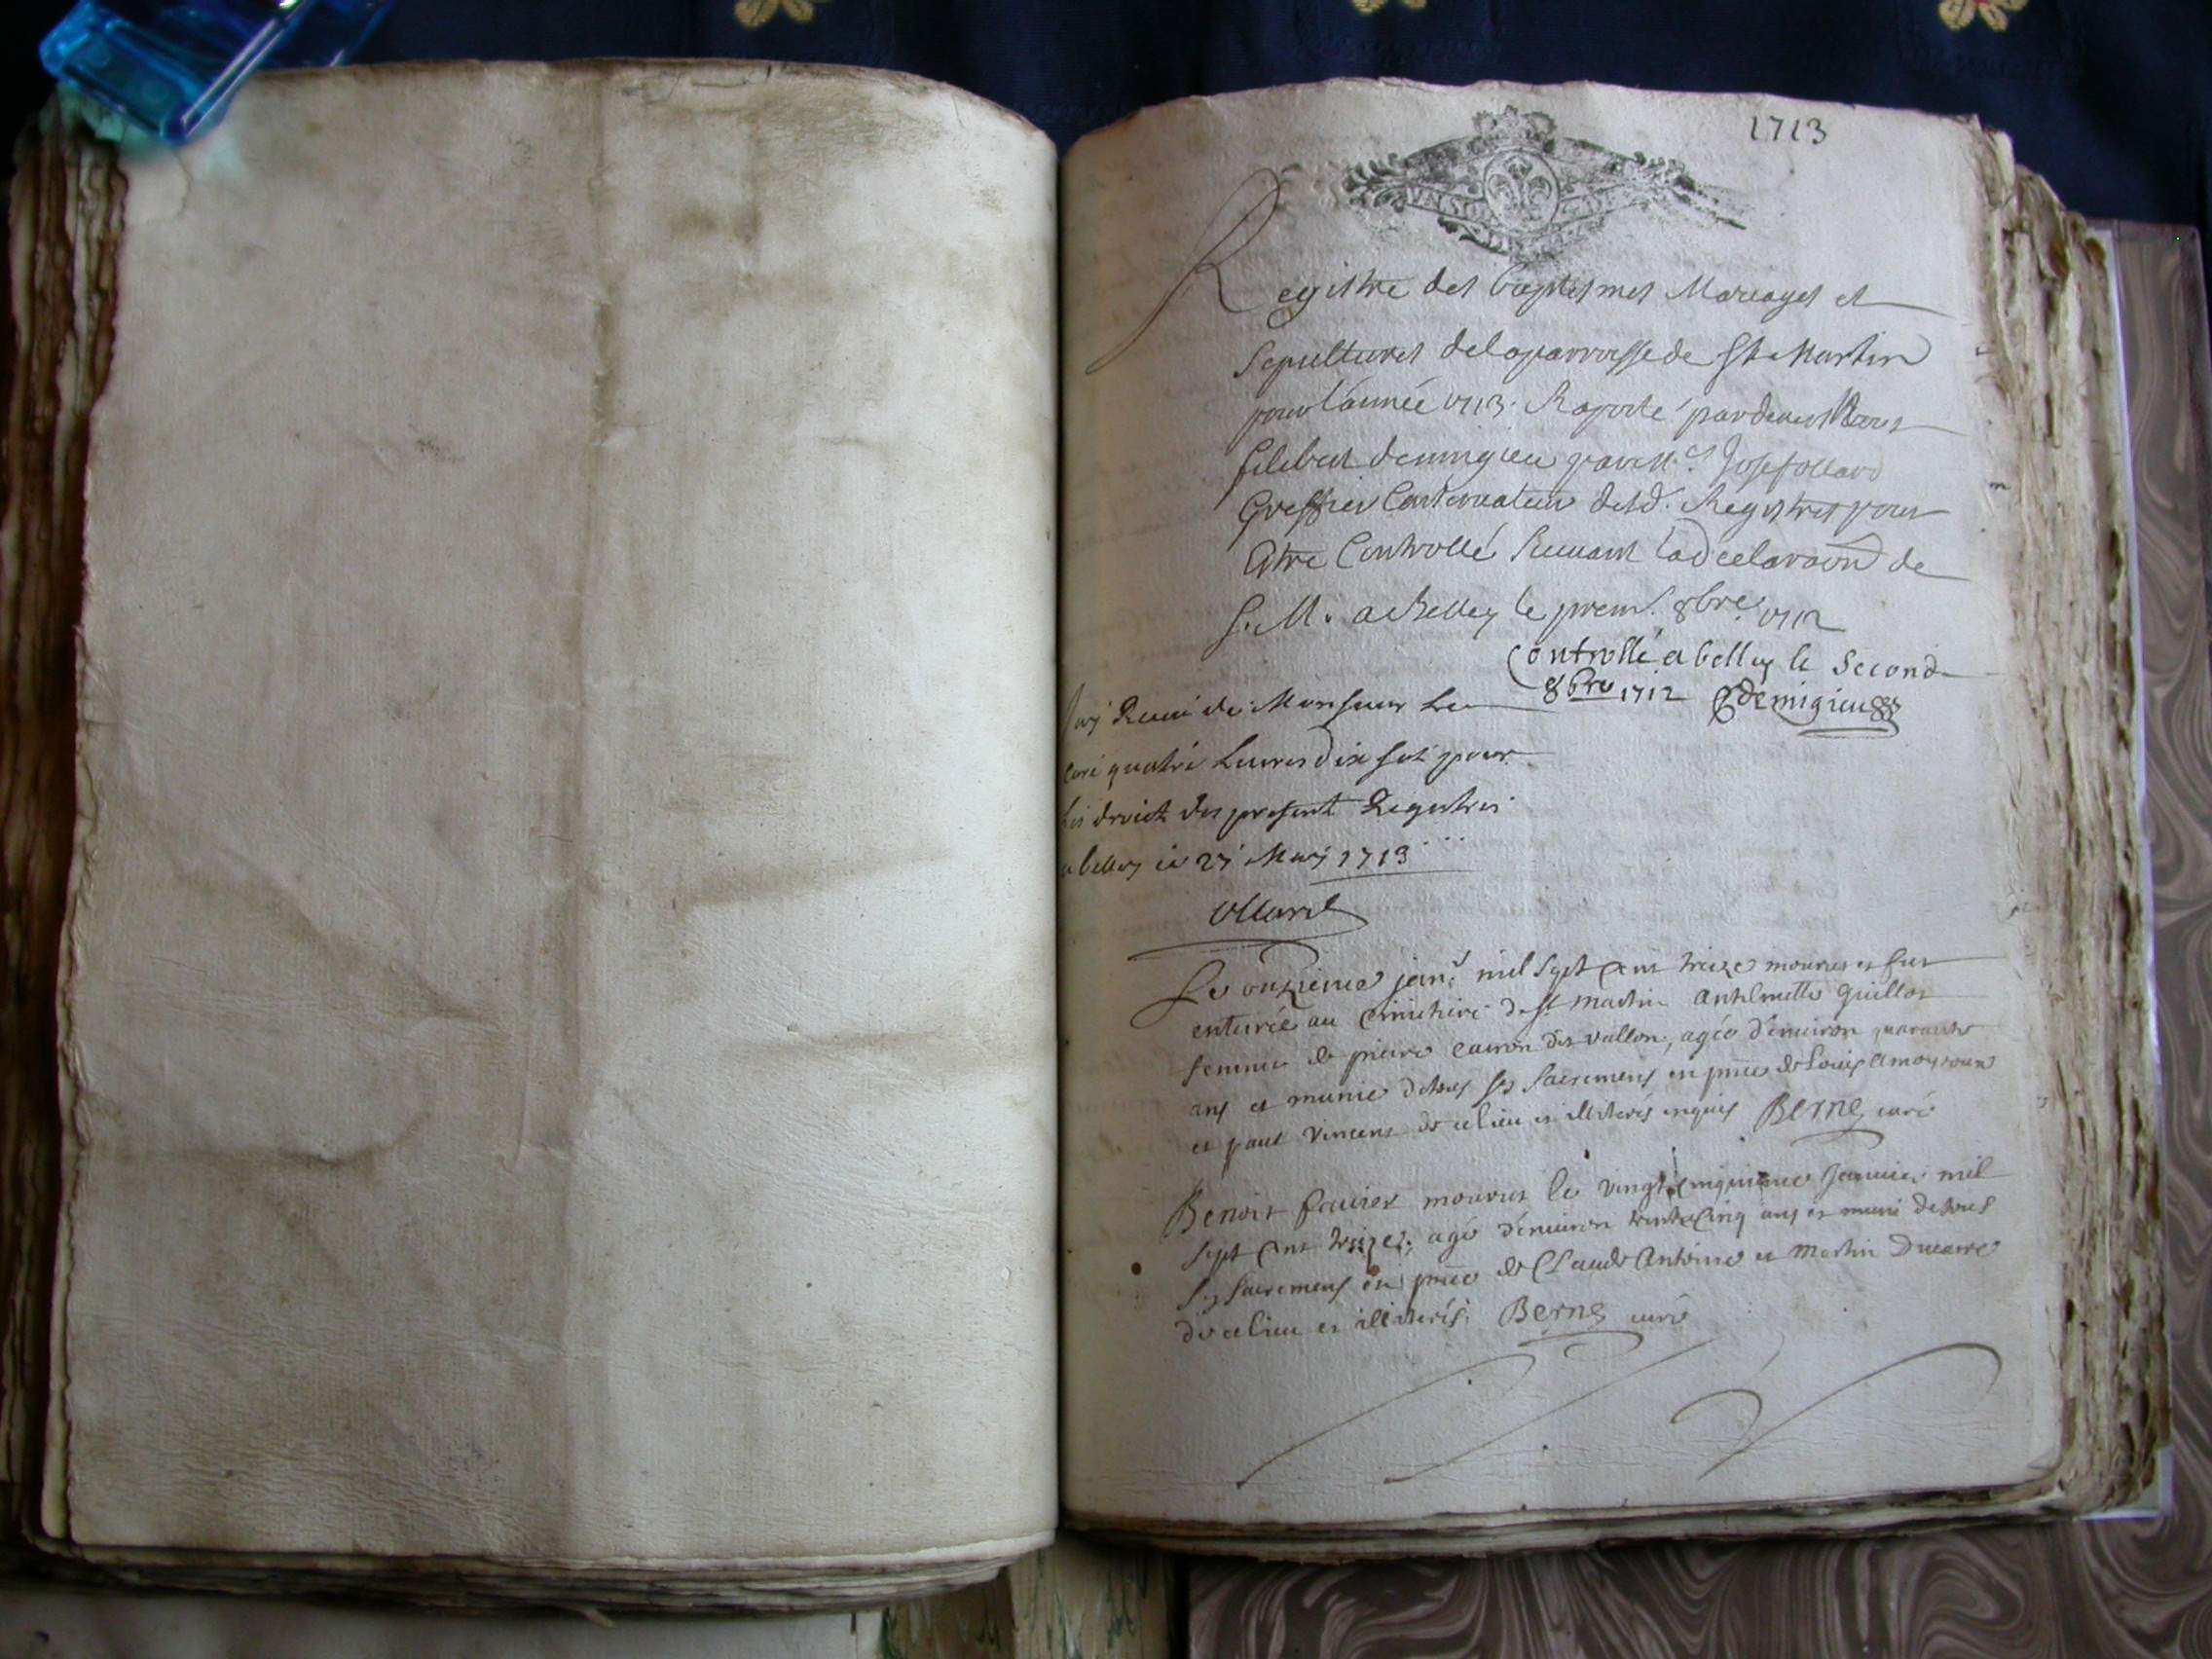 1713
UN SOL
Registre des baptesmes Mariages et
Sepultures de la parroisse de St Martin
pour l'année 1713. Raporté pardevant Nous
filibert demigieu par Mre Josef ollard
Greffier Conservateur desd. Registres pour
Estre Controllé suivant la declaraon de
S. M. a Belley le premr 8bre 1712
Controllé a belley le second
8bre 1712 demigieu
Jay Receu de Monsieur Le
curé quatre Livres dix sol pour
les droict des present Registres
a belley ce 27 May 1713
Ollard
Le onzieme janr mil sept cens treize mourut et fut
enterrée au cimitiere de st martin Anthelmette Guillot
femme de pierre cairon des vallon, agée d'environ quarante
ans et munie de tous ses sacremens en pnce de Louis amoysoun
et paul vincent de ce lieu et illiterés enquis Berne curé
Benoit fauier mourut le vingt cinquieme Janvier mil
sept cens treize, agé d'environ trente cinq ans et muni de tous
ses sacremens en pnce de Claude Antoine et Martin Ducarre
de ce lieu et illiterés. Berne curé